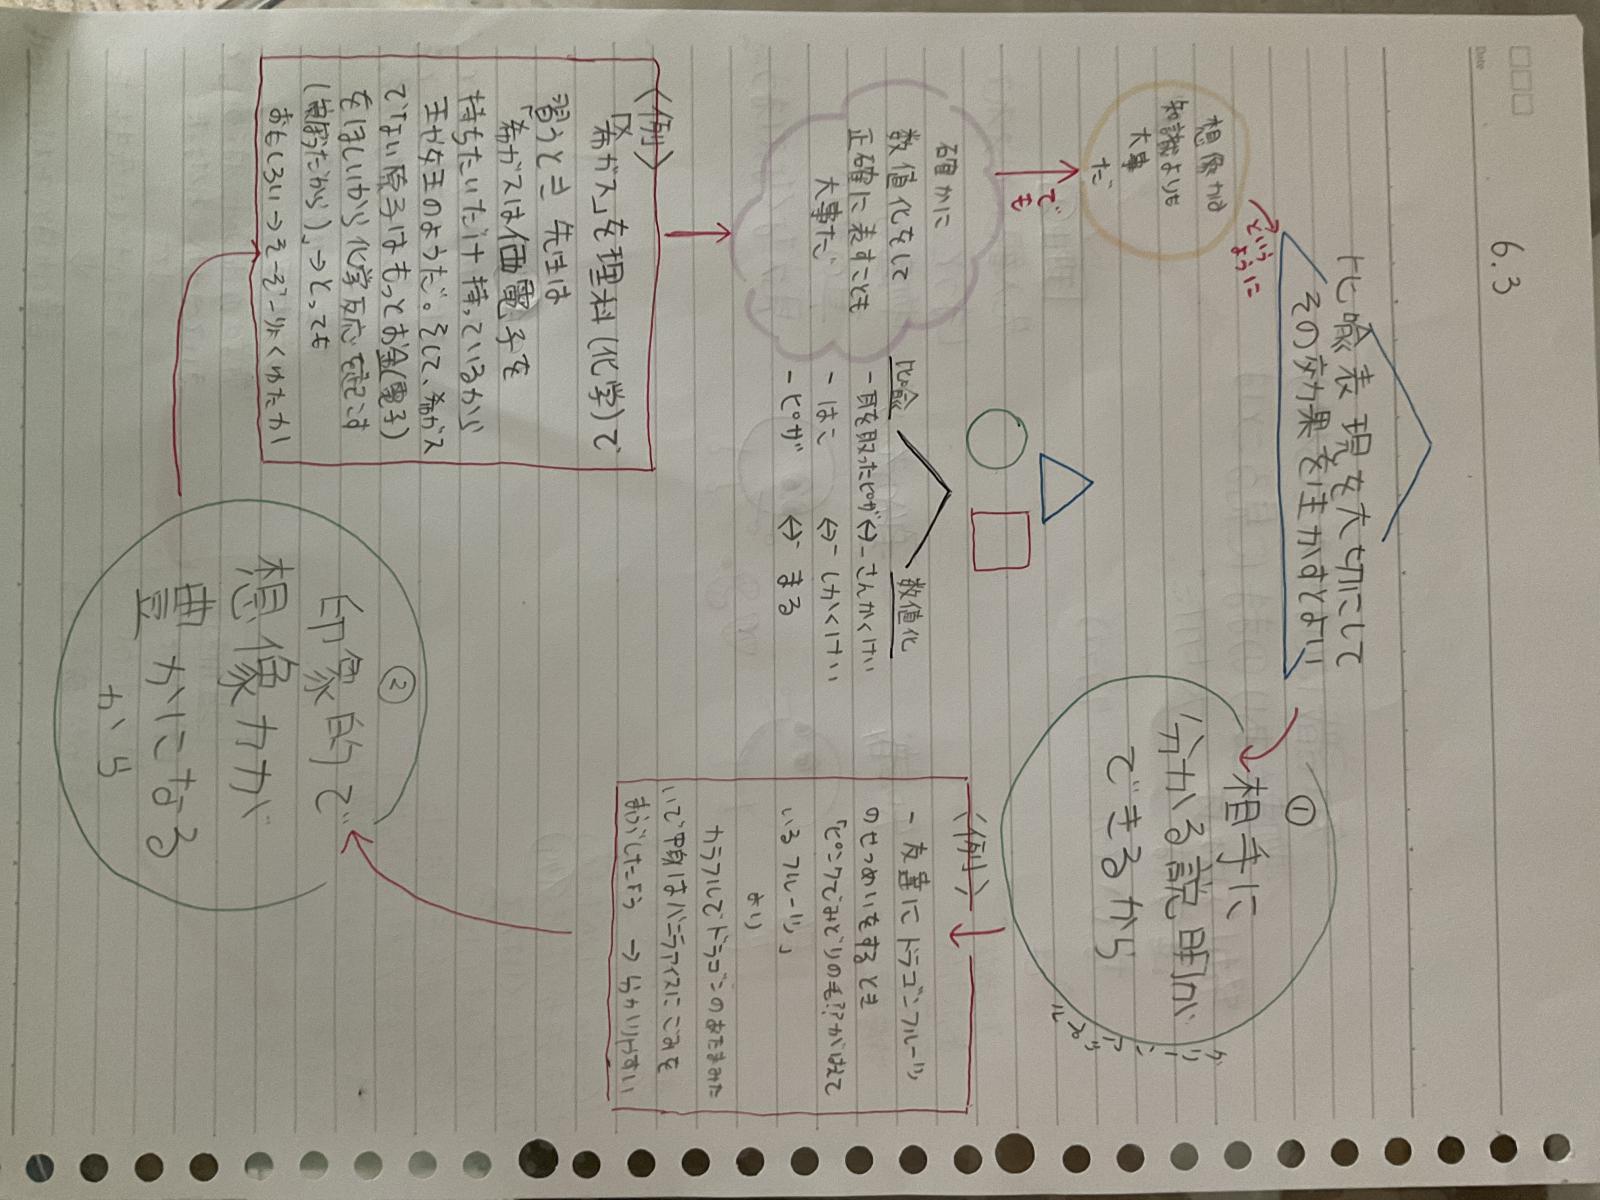 Date
6.3
比喩表現を大切にして
その効果を生かすとよい
という
ように
想像力は
知識よりも
大事
だ
でも
確かに
数値化をして
正確に表すことも
大事だ
①
相手に
分かる説明が
できるから
〈例〉
- 友達にドラゴンフルーツ
のせつめいをするとき
「ピンクでみどりの毛??がはえて
いるフルーツ」
より
カラフルでドラゴンのあたまみた
いで中身はバニラアイスにごまを
まぶしたよう → 分かりやすい
②
印象的で
想像力が
豊かになる
から
〈例〉
「希ガス」を理科(化学)で
習うとき 先生は
希ガスは価電子を
持ちたいだけ持っているから
王か女王のようだ。そして、希ガス
でない原子はもっとお金(電子)
をほしいから化学反応を起こす
→とっても
おもしろい→そーぞーりょくゆたか
比喩
数値化
- 耳を取ったピザ ⇔ - さんかくけい
- はこ ⇔ - しかくけい
- ピザ ⇔ - まる